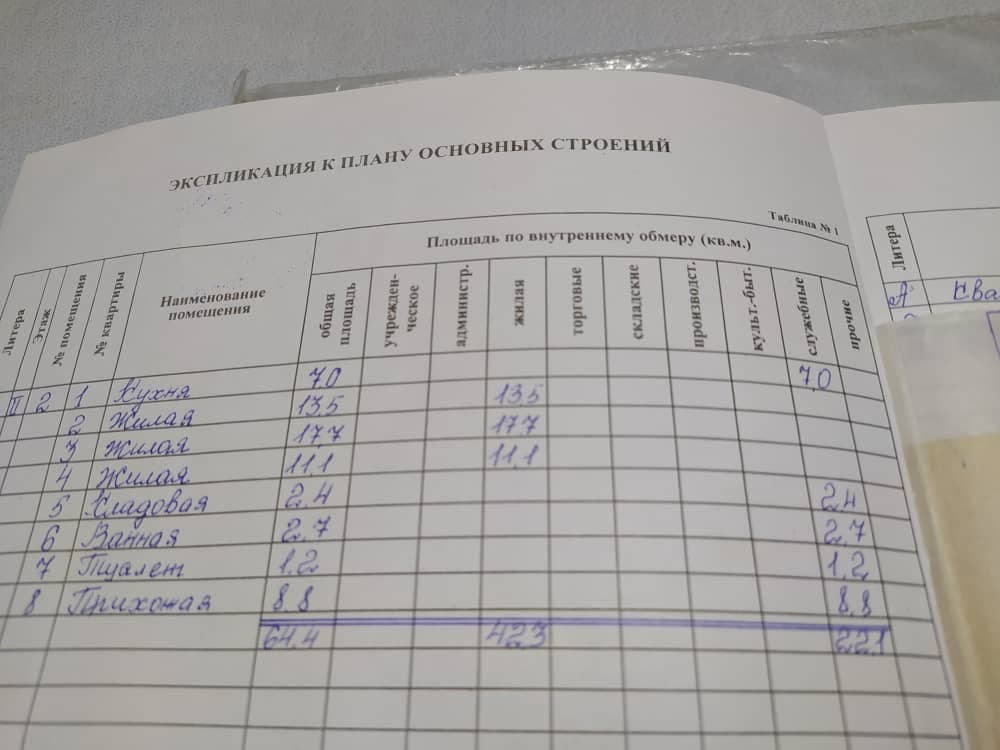 ЭКСПЛИКАЦИЯ К ПЛАНУ ОСНОВНЫХ СТРОЕНИЙ
Таблица № 1
Литера Этаж № помещения № квартиры Наименование помещения Площадь по внутреннему обмеру (кв.м.)
общая площадь учрежден-ческое администр. жилая торговые складские производст. культ.-быт. служебные прочие
II 2 1 Кухня 7.0 7.0
2 Жилая 13.5 13.5
3 Жилая 17.7 17.7
4 Жилая 11.1 11.1
5 Кладовая 2.4 2.4
6 Ванная 2.7 2.7
7 Туалет 1.2 1.2
8 Прихожая 8.8 8.8
64.4 42.3 22.1
Литера
А